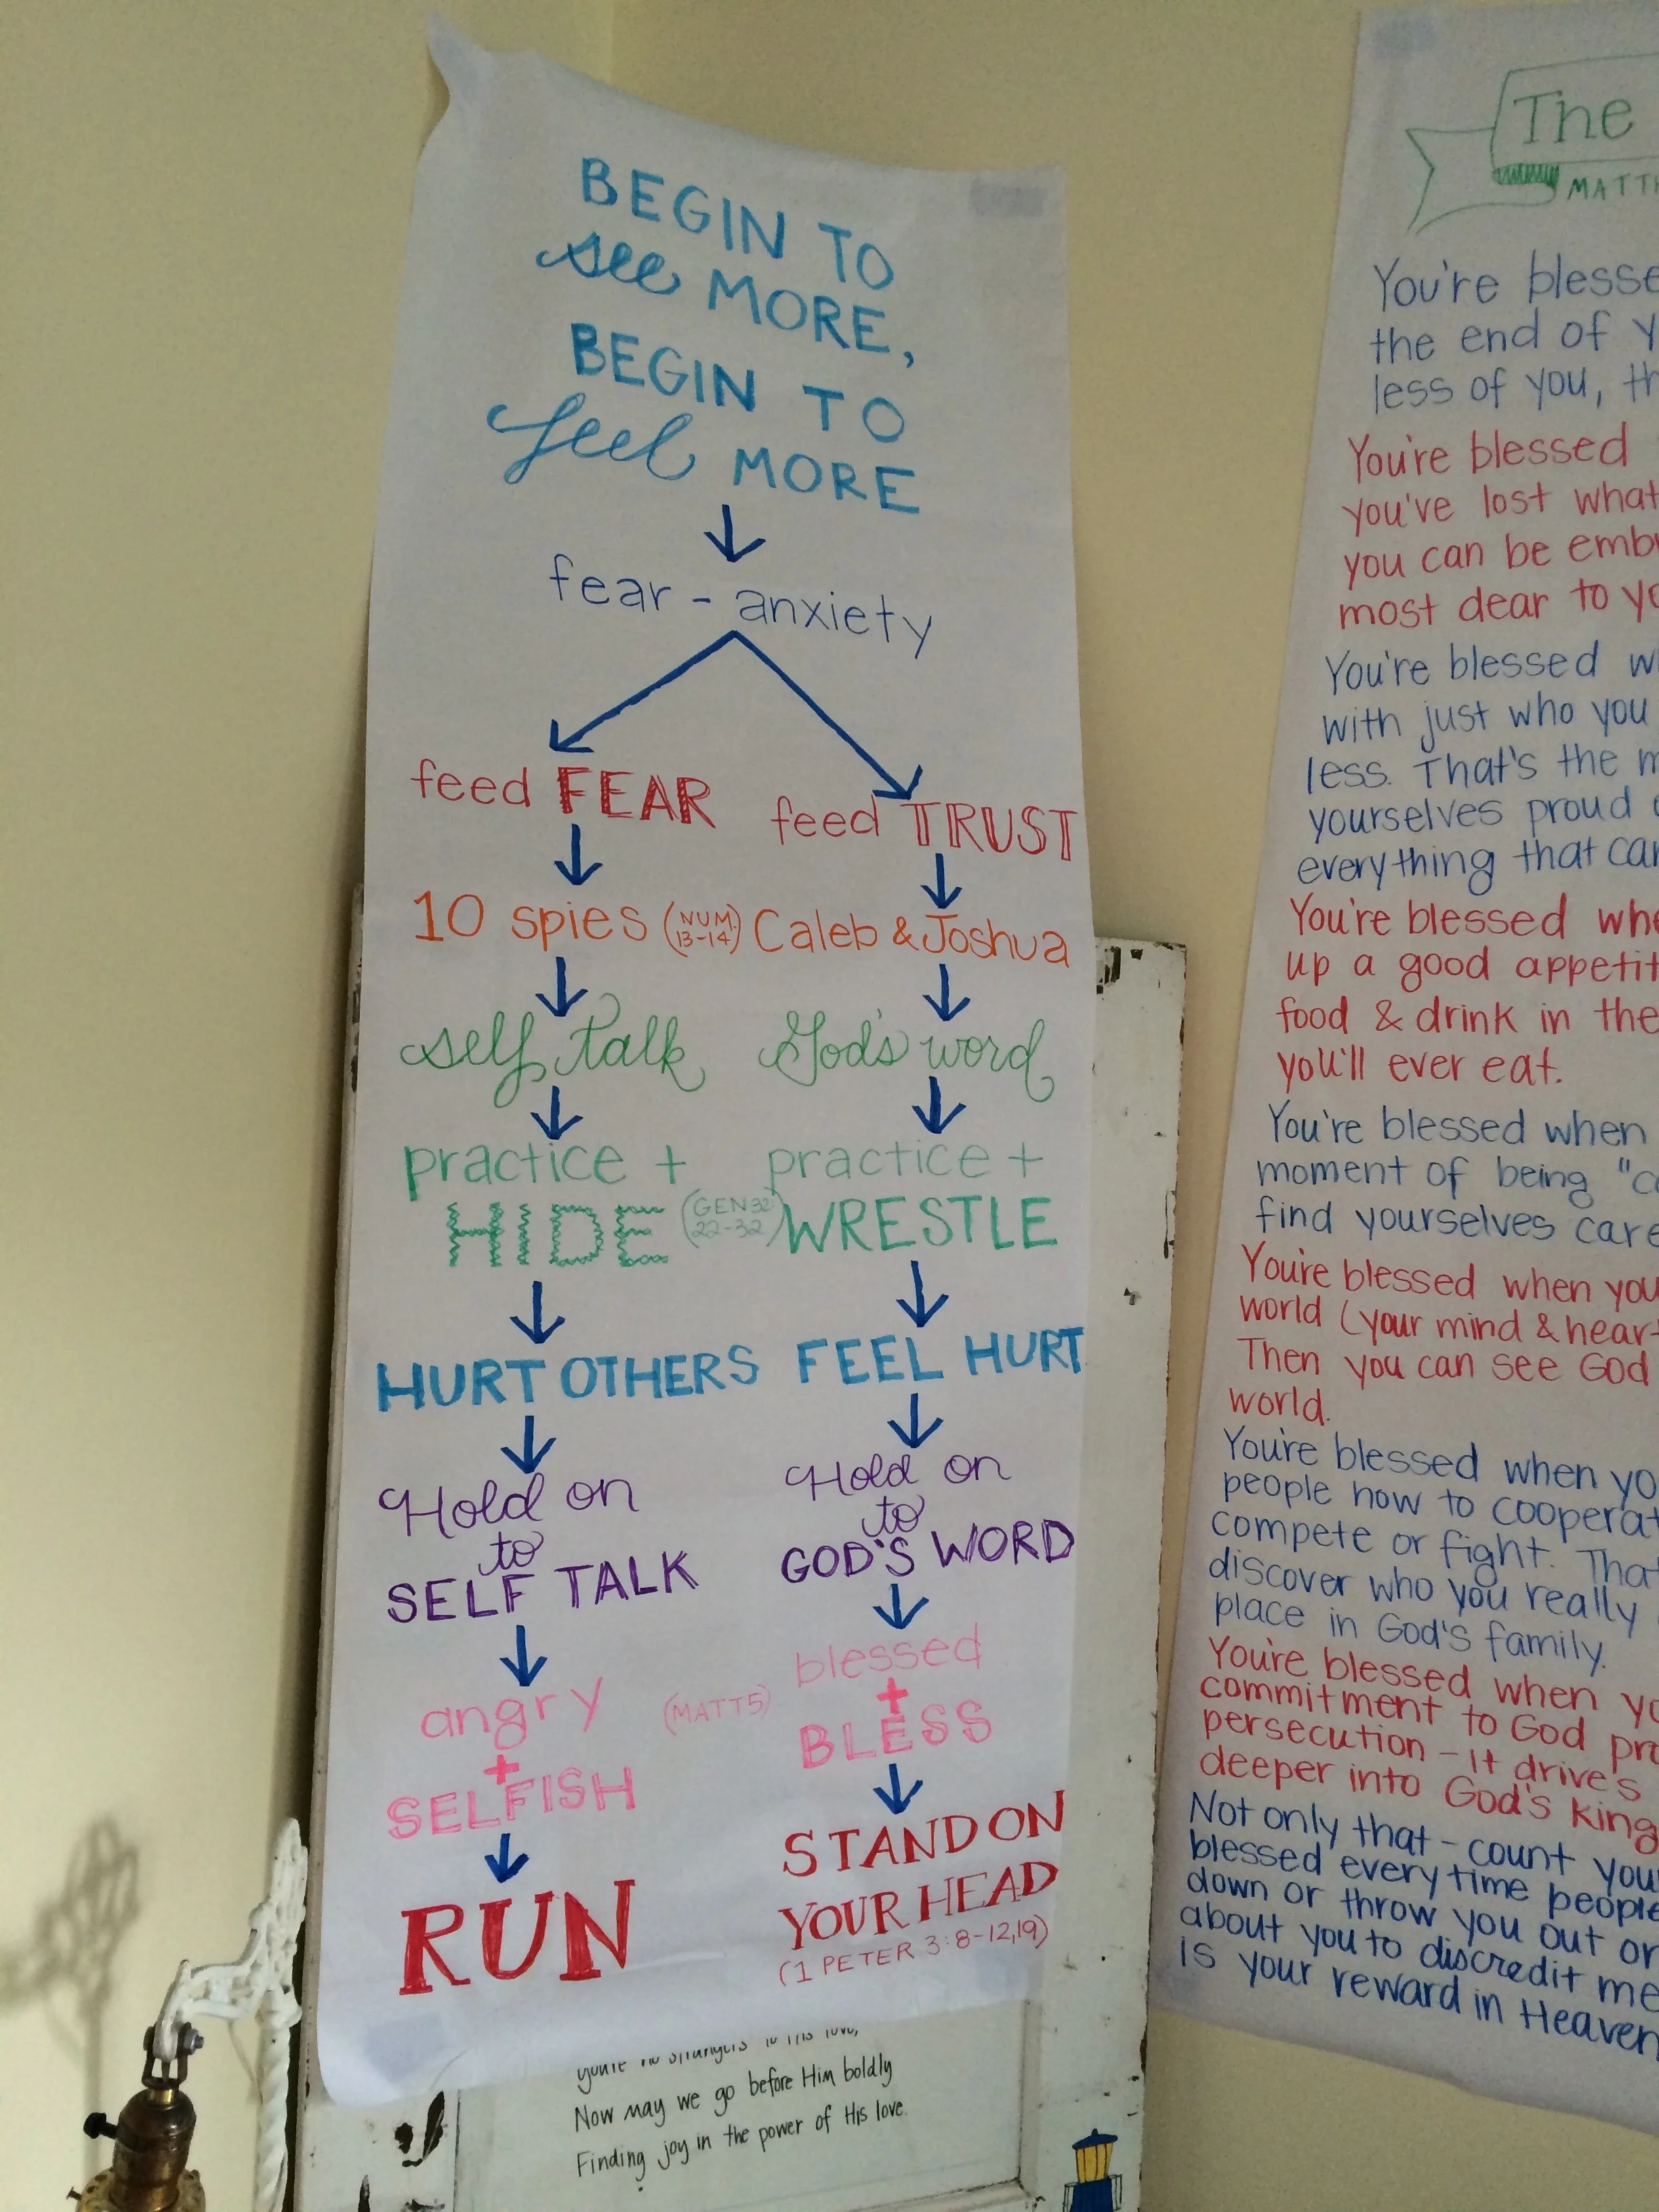 BEGIN TO
see MORE,
BEGIN TO
feel MORE
fear - anxiety
feed FEAR
feed TRUST
10 spies (NUM. 13-14) Caleb & Joshua
self talk
God's word
practice +
HIDE
(GEN 32
22-32)
practice +
WRESTLE
HURT OTHERS
FEEL HURT
Hold on
to
SELF TALK
Hold on
to
GOD'S WORD
angry
+
SELFISH
(MATT 5)
blessed
+
BLESS
RUN
STAND ON
YOUR HEAD
(1 PETER 3:8-12,19)
to His love,
Now may we go before Him boldly
Finding joy in the power of His love.
The
MATTH
You're blesse
the end of y
less of you, th
You're blessed
you've lost what
you can be embr
most dear to yo
You're blessed w
with just who you
less. That's the m
yourselves proud o
everything that can
You're blessed whe
up a good appetit
food & drink in the
you'll ever eat.
You're blessed when
moment of being "ca
find yourselves care
You're blessed when you
world (your mind & heart
Then you can see God
world.
You're blessed when yo
people how to cooperat
compete or fight. That
discover who you really
place in God's family.
You're blessed when yo
commitment to God pro
persecution - it drive's
deeper into God's King
Not only that - count you
blessed every time people
down or throw you out or
about you to discredit me
is your reward in Heaven